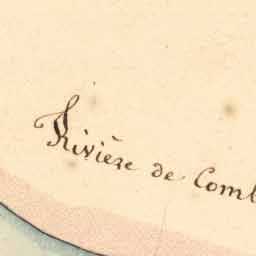 Rivière de Comb